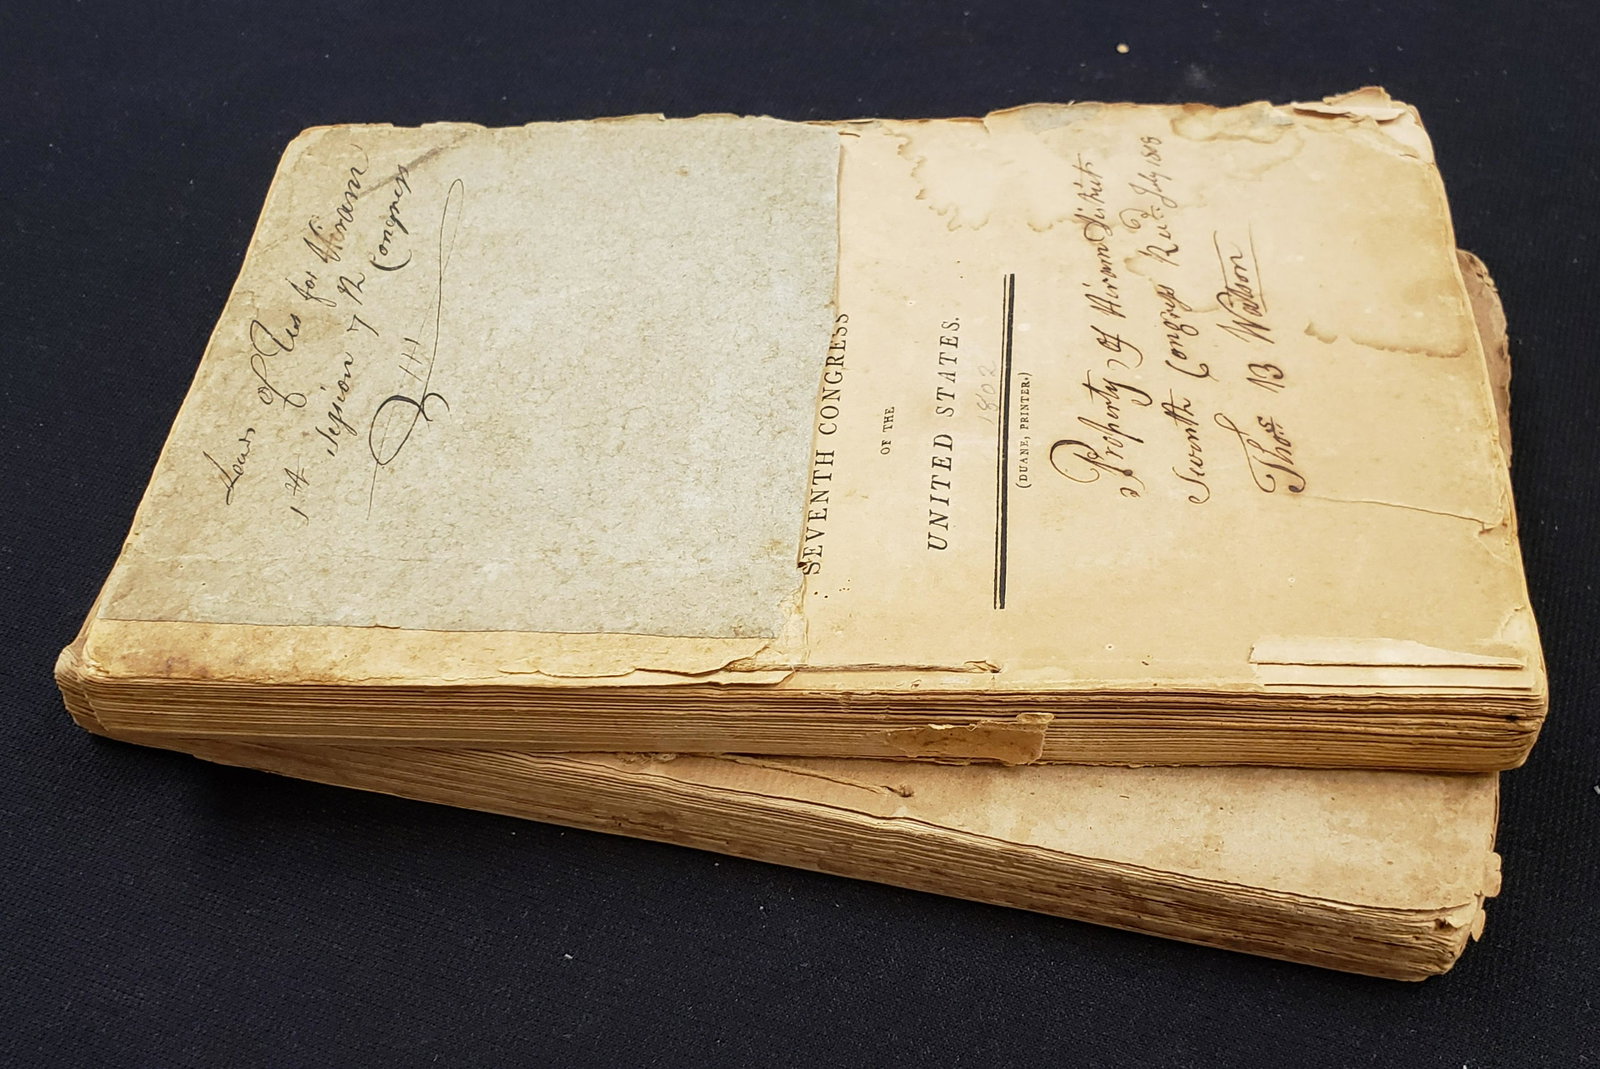 Laws of U s for Hiram
1st Session 7th Congress
SEVENTH CONGRESS
OF THE
UNITED STATES.
1802
(DUANE, PRINTER.)
Property of Hiram
Seventh Congress Recd. July
Thos B Watson